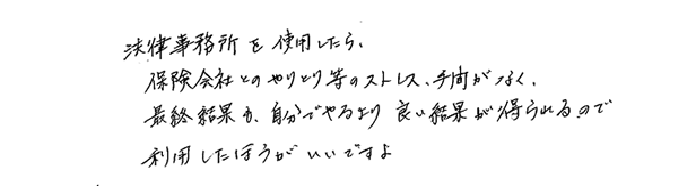 法律事務所を使用したら、
保険会社とのやりとり等のストレス、手間がなく、
最終結果も、自分でやるより良い結果が得られるので
利用したほうがいいですよ